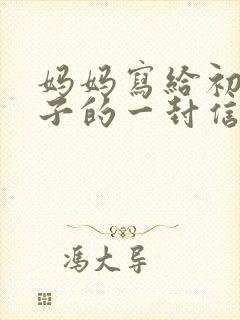 妈妈寫給初
子的一封信
馮大导